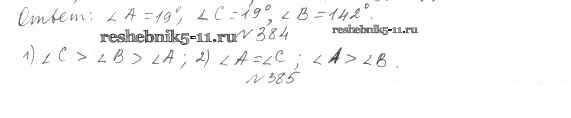 Ответ: ∠A = 19°, ∠C = 19°, ∠B = 142°.
reshebnik5-11.ru №384 reshebnik5-11.ru
1) ∠C > ∠B > ∠A ; 2) ∠A = ∠C ; ∠A > ∠B .
№385